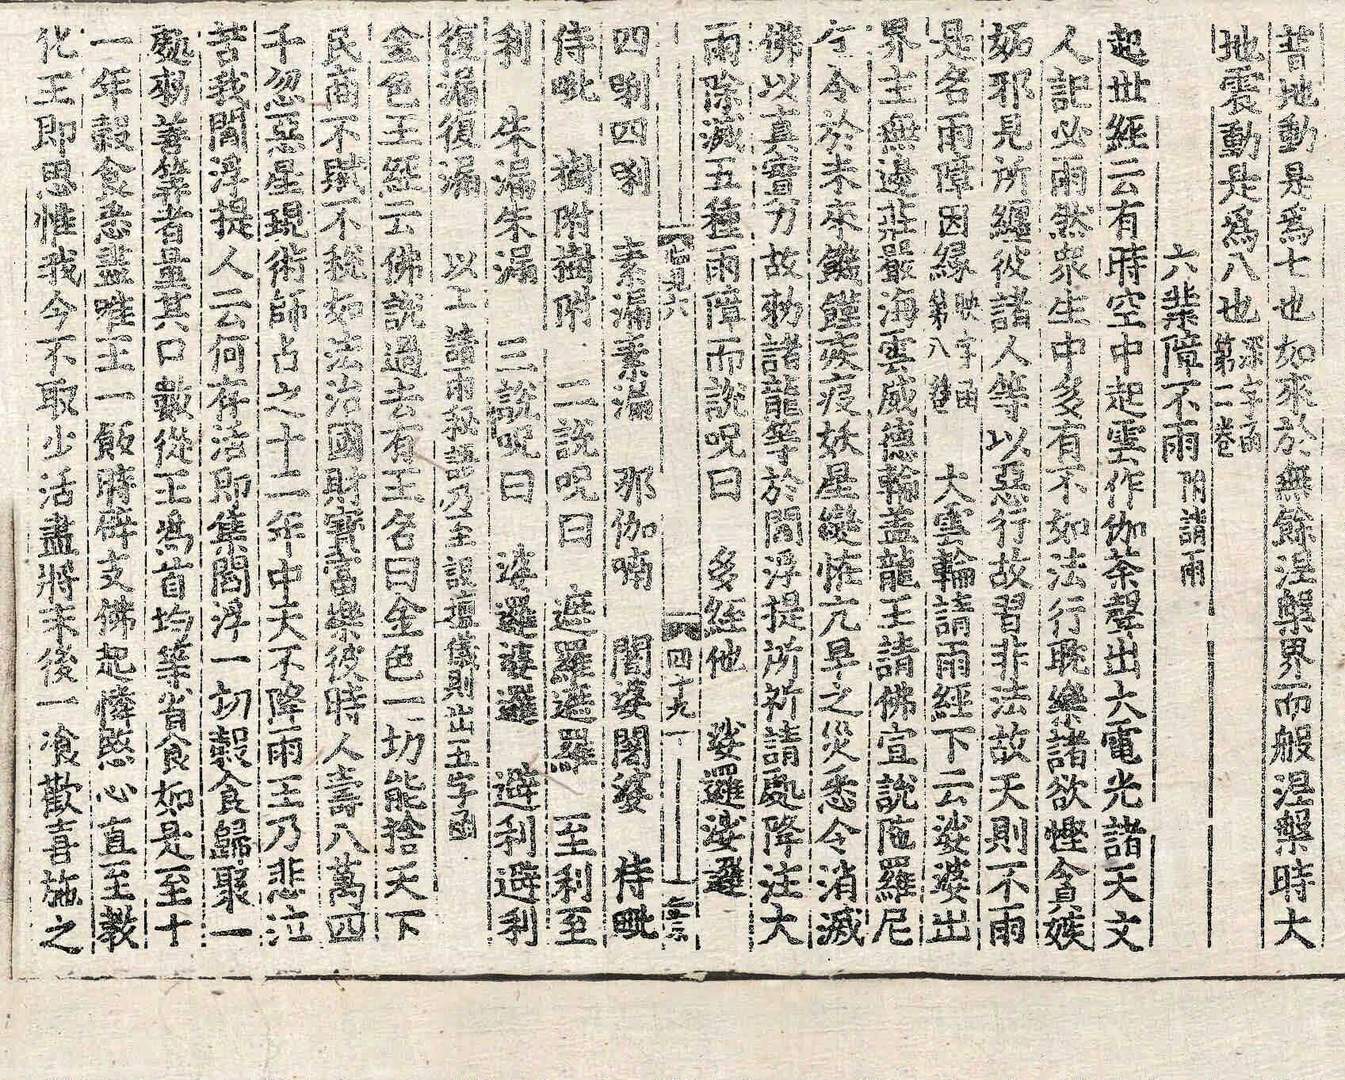 普地動是爲七也如來於無餘涅槃界而般涅槃時大
地震動是爲八也深字函第二卷
六業障不雨附請雨
起世經云有時空中起雲作伽茶聲出六電光諸天文
人記必雨然衆生中多有不如法行耽樂諸欲慳貪嫉
妬邪見所纏彼諸人等以惡行故習非法故天則不雨
是名雨障因緣映字函第八卷 大雲輪請雨經下云娑婆出
界主無邊莊嚴海雲威德輪盖龍王請佛宣說陁羅尼
令於未來饑饉疾疫妖星變恠亢旱之災悉令消滅
佛以真實力故勑諸龍等於閻浮提所祈請處降注大
雨除滅五種雨障而說呪曰 多絰他 娑邏娑邏
四唎四唎 素漏素漏 那伽喃 闍婆闍婆 侍毗
侍毗 樹附樹附 二說呪曰 遮羅遮羅 至利至
利 朱漏朱漏 三說呪曰 婆邏婆邏 避利避利
復漏復漏 以上請雨秘語乃至設壇儀則出五字函
金色王經云佛說過去有王名曰金色一切能捨天下
民商不賦不稅如法治國財寶富樂彼時人壽八萬四
千忽惡星現術師占之十二年中天不降雨王乃悲泣
苦我閻浮提人云何存活即集閻浮一切穀食歸聚一
處勑善筭者量其口數從王爲首均等省食如是至十
一年穀食悉盡唯王一飯時辟支佛起憐愍心直至教
化王即思惟我今不取少活盡將末後一飡歡喜施之